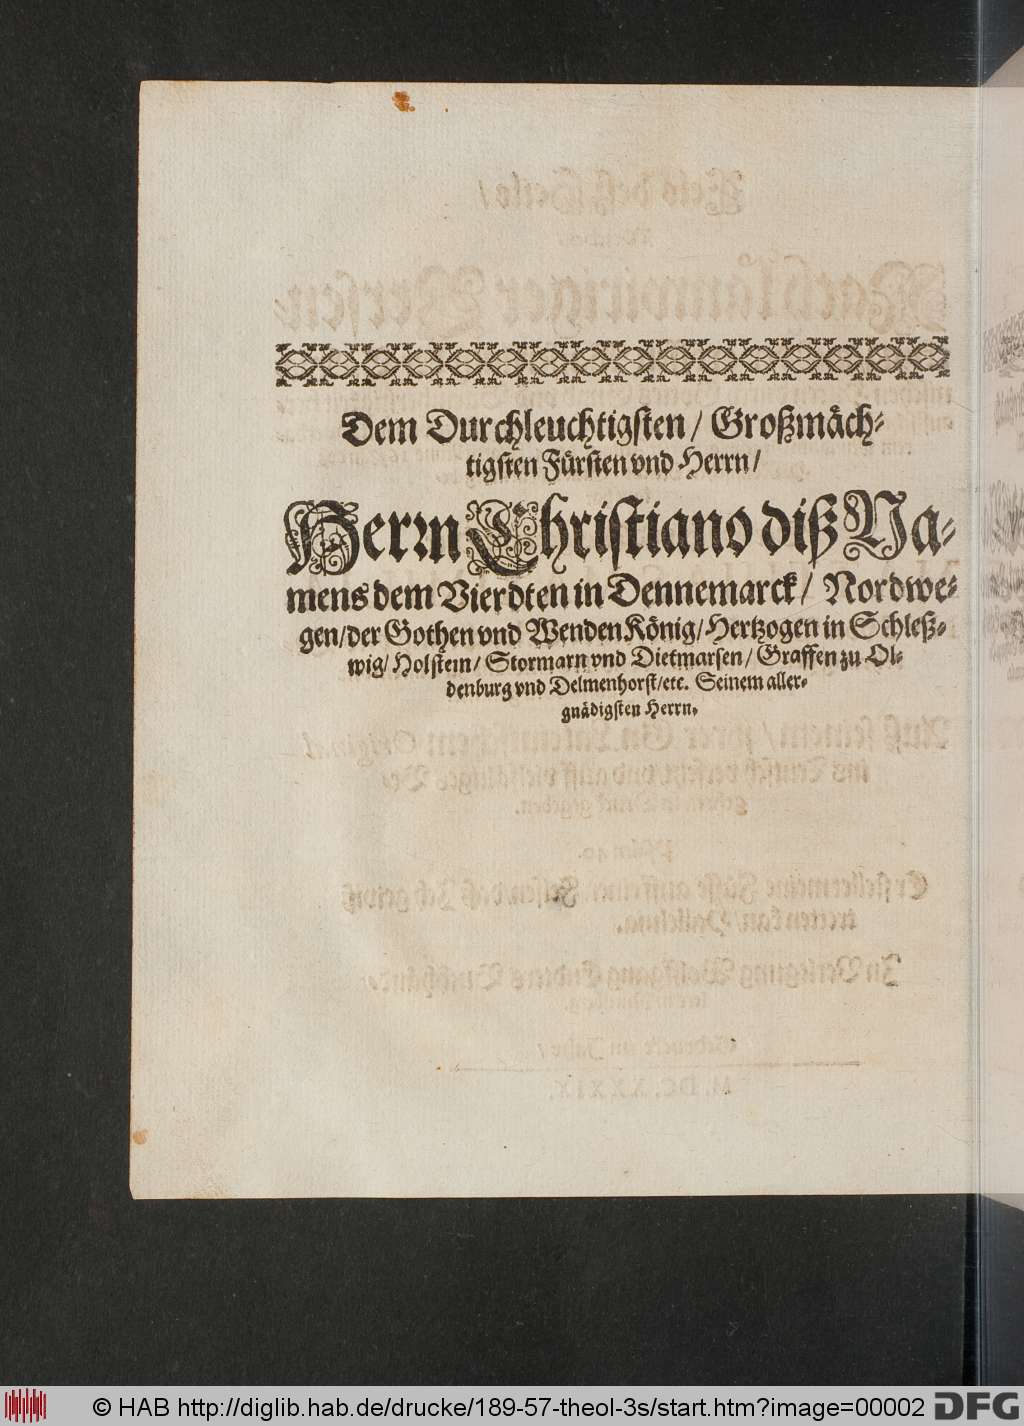 Dem Durchleuchtigsten / Großmäch-
tigsten Fürsten vnd Herrn /
Herrn Christiano diß Na-
mens dem Vierdten in Dennemarck / Nordwe-
gen / der Gothen vnd Wenden König / Hertzogen in Schleß-
wig / Holstein / Stormarn vnd Dietmarsen / Graffen zu Ol-
denburg vnd Delmenhorst / etc. Seinem aller-
gnädigsten Herrn.
© HAB http://diglib.hab.de/drucke/189-57-theol-3s/start.htm?image=00002 DFG